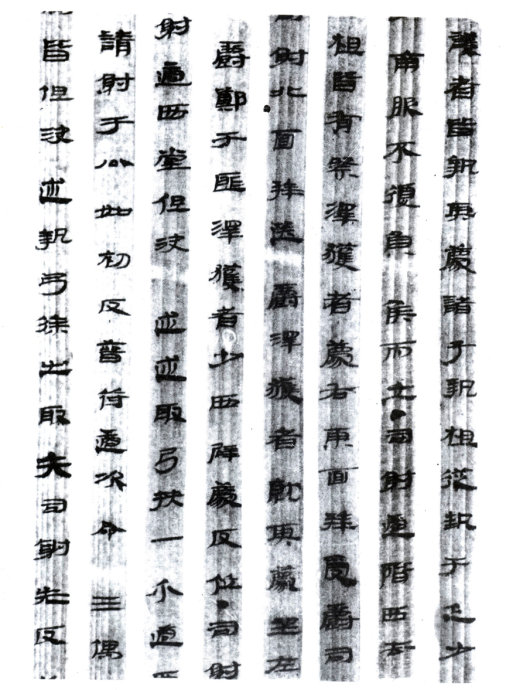 獲者皆執其薦諸子執柤從執于乏少
南服不復負侯而立●司射適階西去
柤皆有祭澤獲者薦右東面拜受爵司
射北面拜送爵澤獲者就其薦坐左
爵鄭于匪澤獲者少西辟薦反位●司射
射適西堂但決述述取弓挾一个適
請射于公如初反晉待適次命三偶
皆但決述執弓徐之取矢司射先反